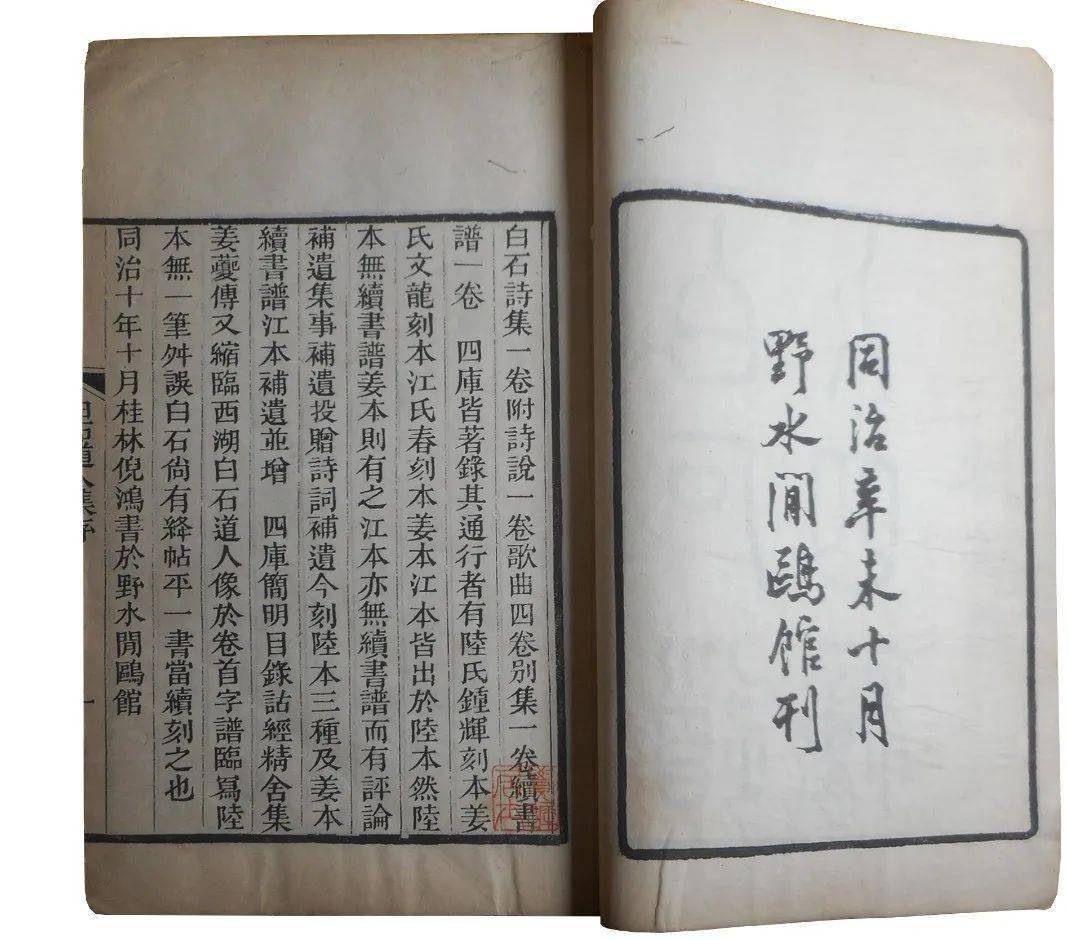 同治辛未十月
野水閒鷗館刊
白石詩集一卷附詩說一卷歌曲四卷別集一卷續書
譜一卷　四庫皆著錄其通行者有陸氏鍾輝刻本姜
氏文龍刻本江氏春刻本姜本江本皆出於陸本然陸
本無續書譜姜本則有之江本亦無續書譜而有評論
補遺集事補遺投贈詩詞補遺今刻陸本三種及姜本
續書譜江本補遺並增　四庫簡明目錄詁經精舍集
姜夔傳又縮臨西湖白石道人像於卷首字譜臨寫陸
本無一筆舛誤白石尚有絳帖平一書當續刻之也
同治十年十月桂林倪鴻書於野水閒鷗館
道人集序
一